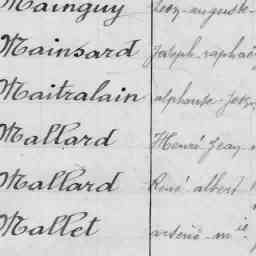 Mainguy Léon-auguste-
Mainsard Joseph-raphaë
Maitralain alphonse-Jose
Mallard Henri Jean
Mallard René albert
Mallet arsène-m ie